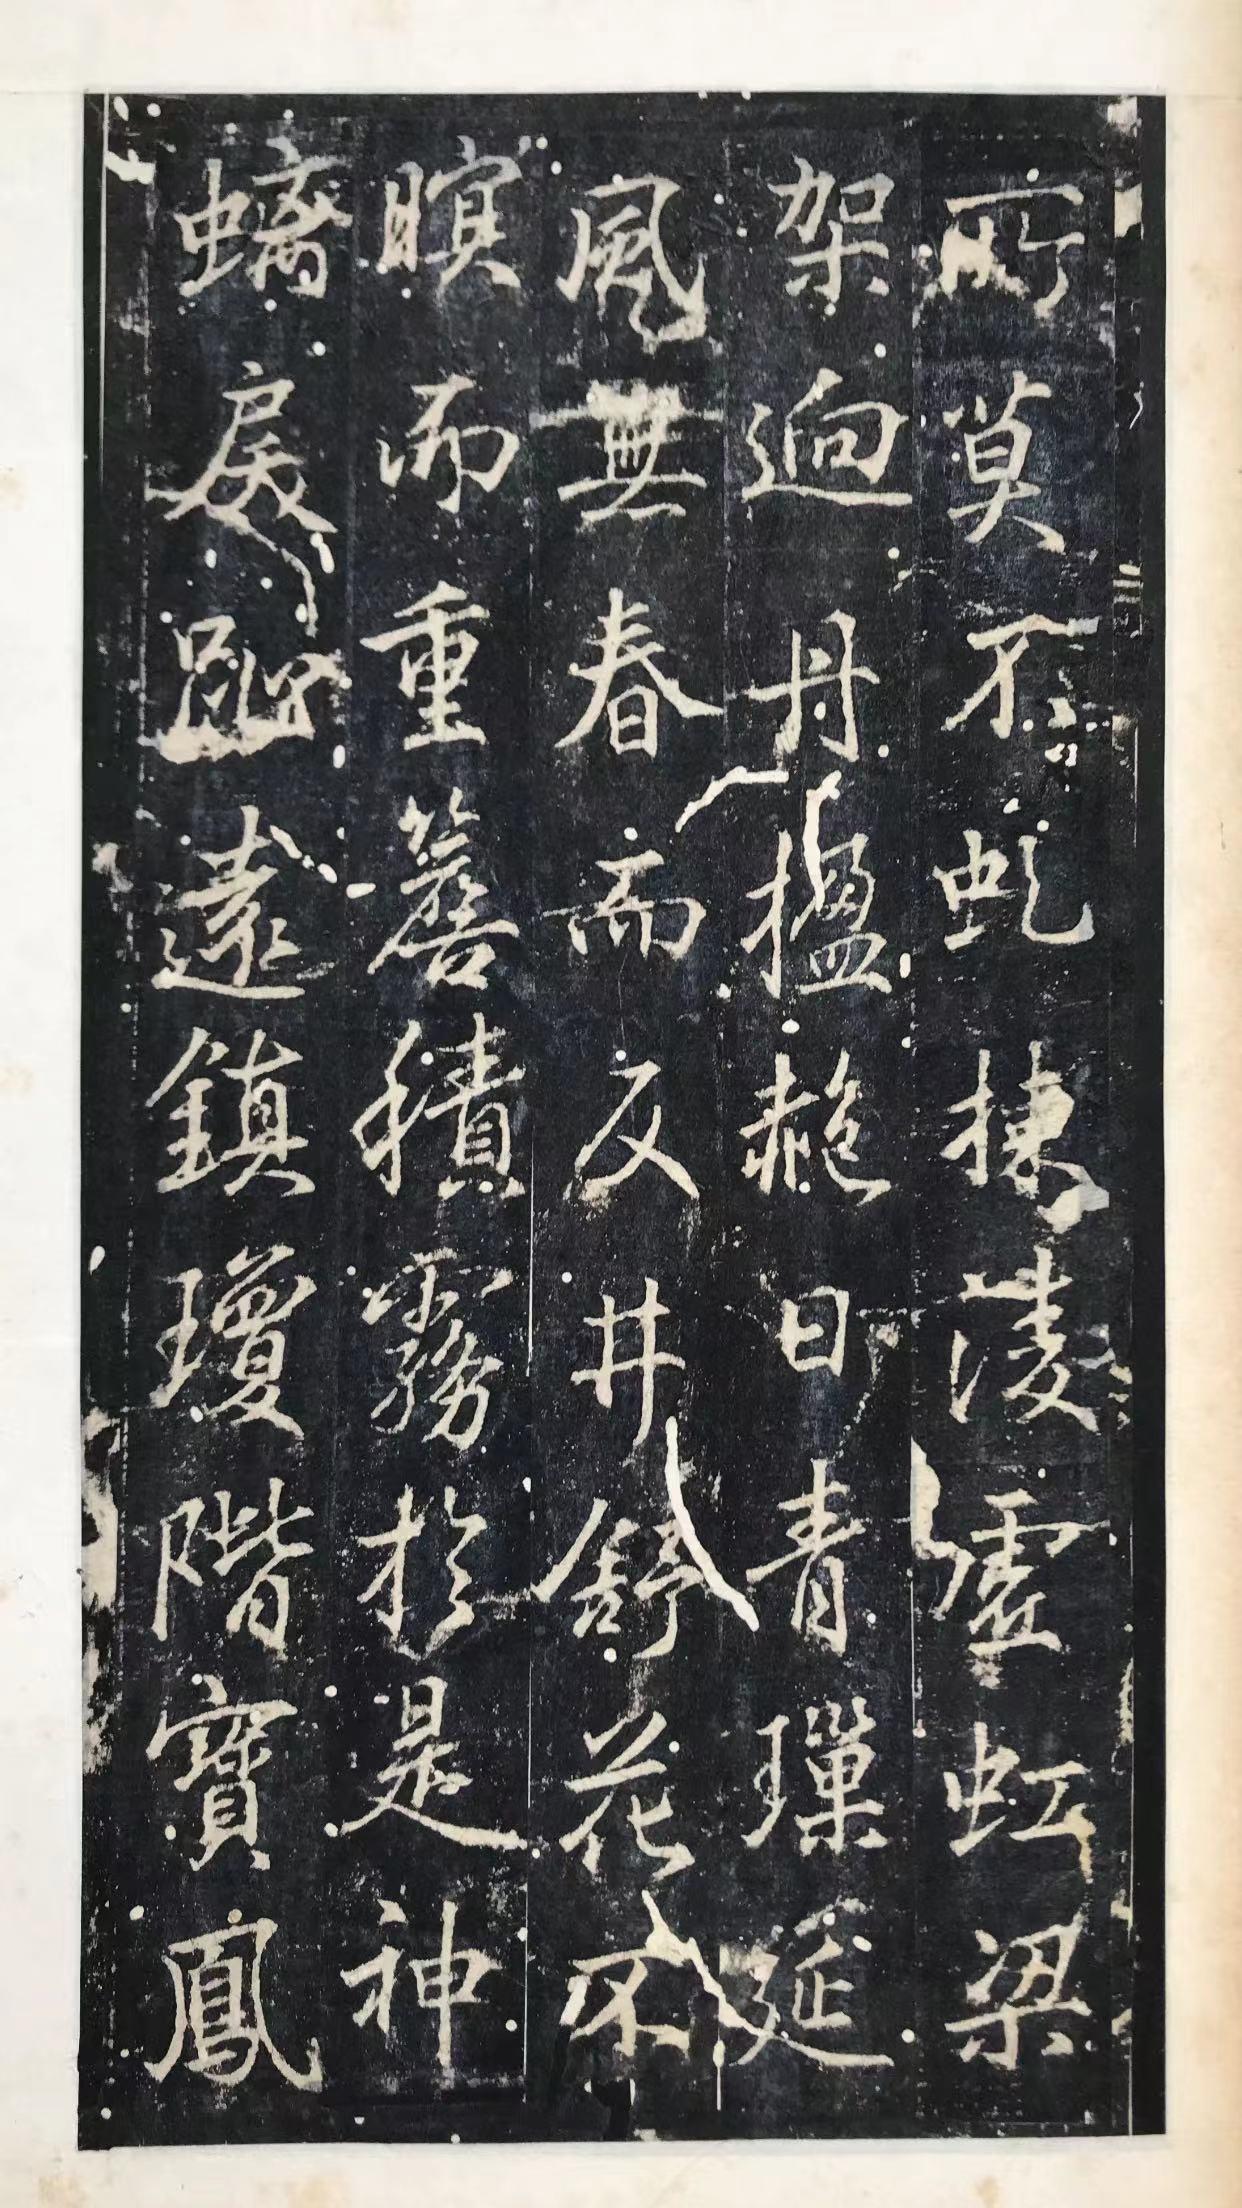 所莫不虬棟淩虛虹梁
架迥丹楹赩日青璅延
風無春而反井舒花不
暝而重簷積霧於是神
螭戾遠鎮瓊階寶鳳